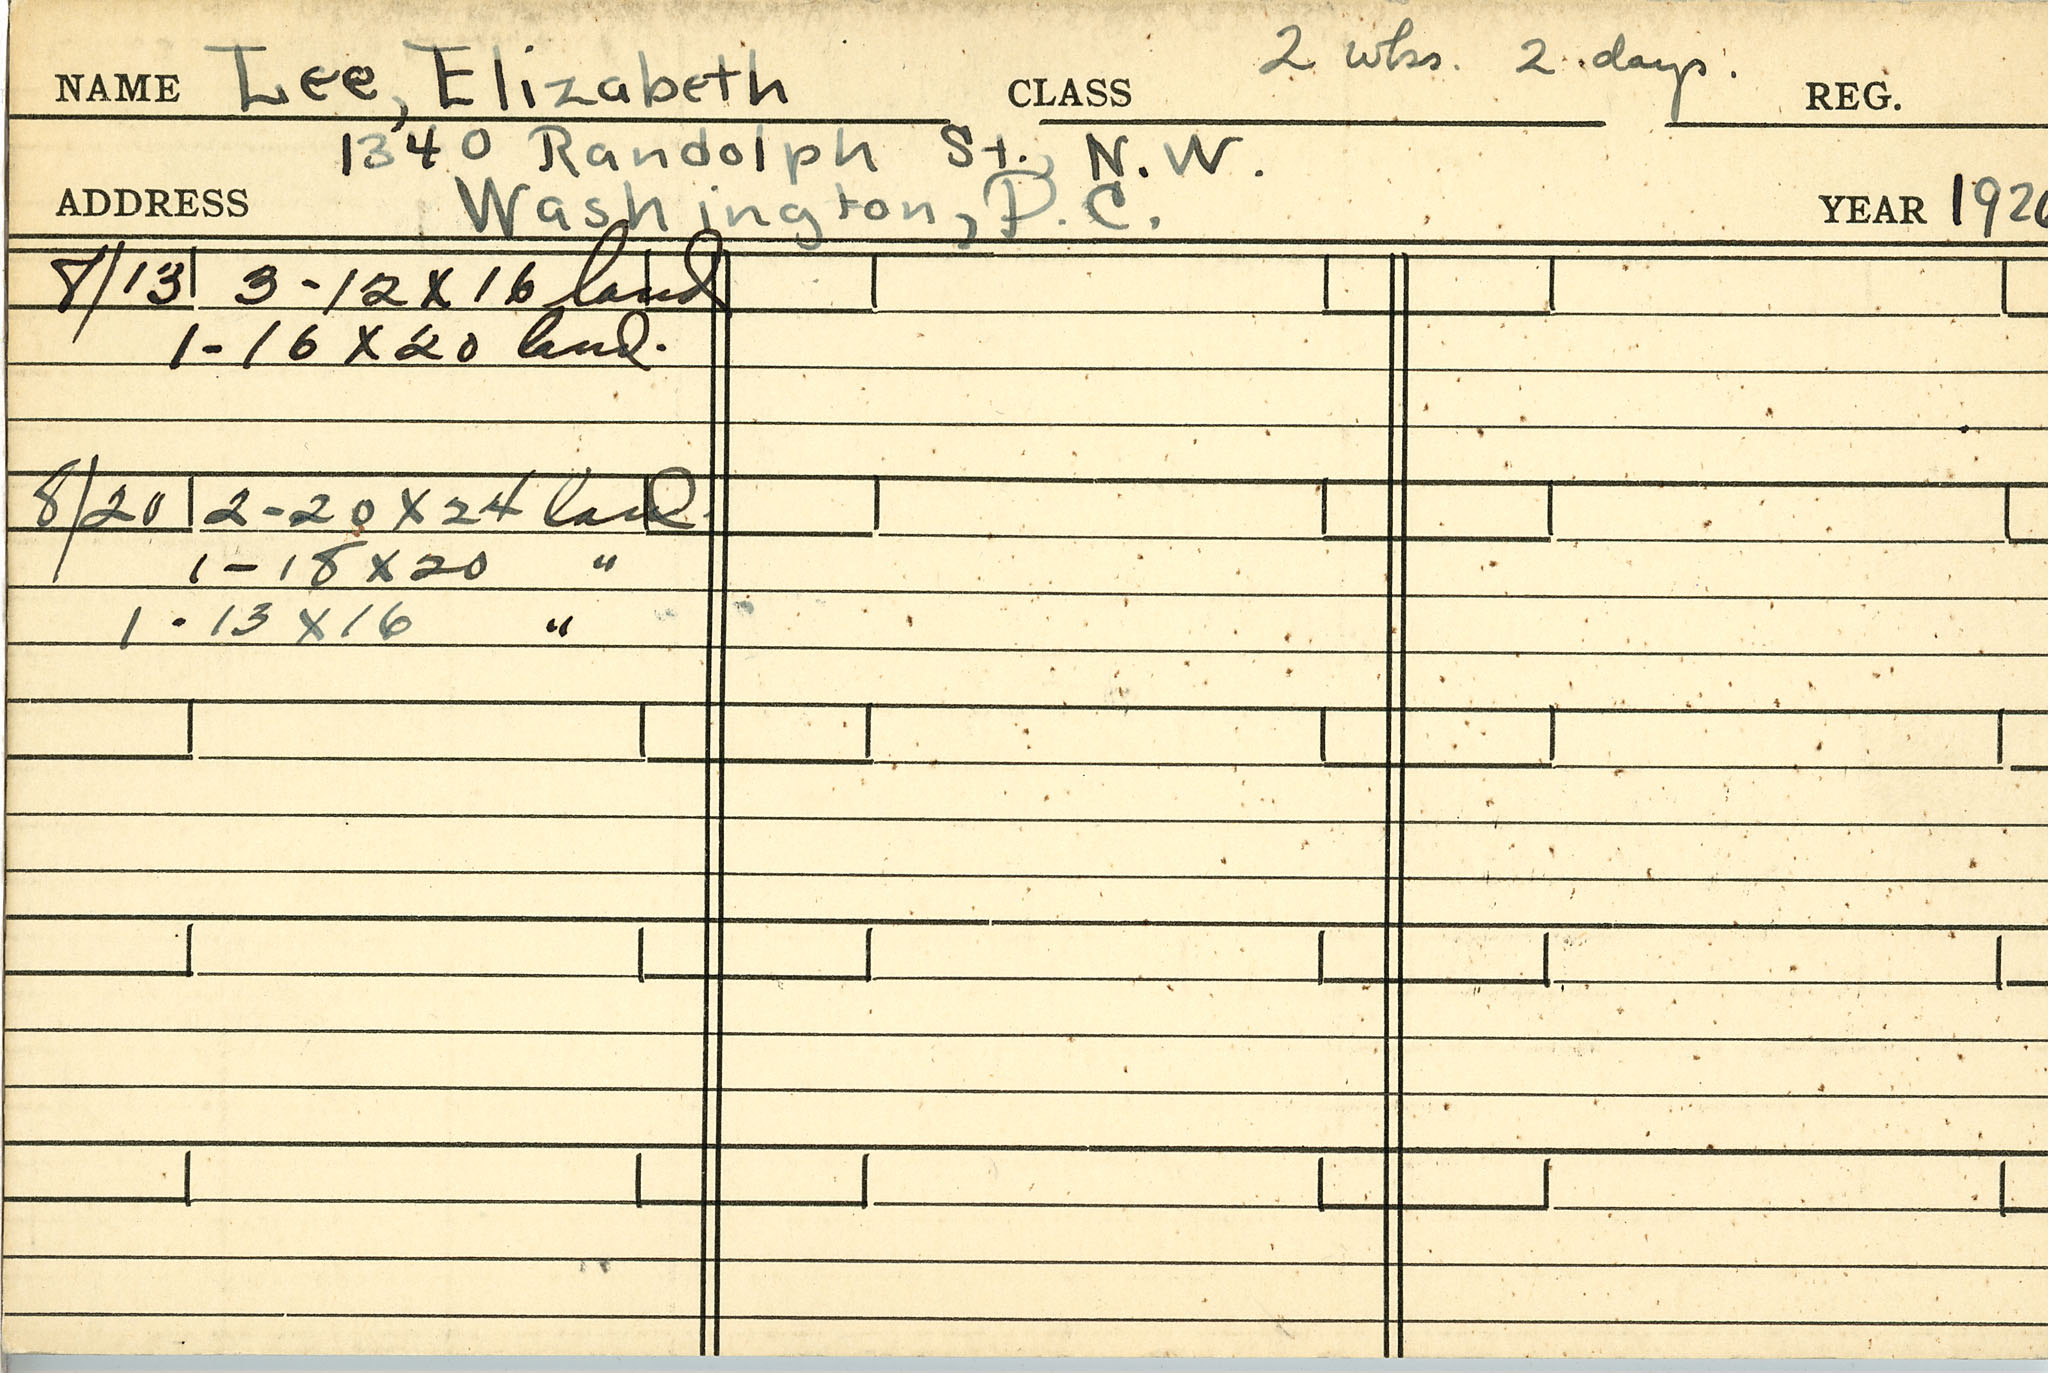 NAME Lee, Elizabeth CLASS 2 wks. 2 days. REG.
1340 Randolph St., N.W.
ADDRESS Washington, D.C. YEAR 1926
8/13 3-12 X 16 land
1-16 X 20 land.
8/20 2-20 X 24 land.
1-18 X 20 "
1-13 X 16 "